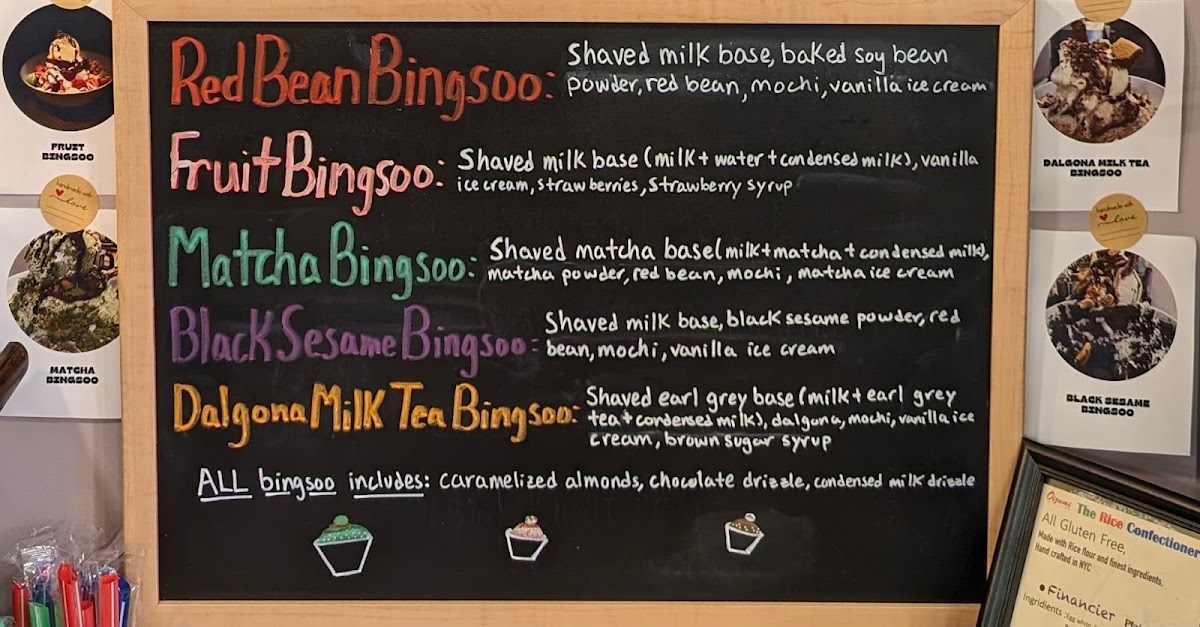 Red Bean Bingsoo: Shaved milk base, baked soy bean
powder, red bean, mochi, vanilla ice cream
Fruit Bingsoo: Shaved milk base (milk + water + condensed milk), vanilla
ice cream, strawberries, strawberry syrup
Matcha Bingsoo: Shaved matcha base (milk + matcha + condensed milk),
matcha powder, red bean, mochi, matcha ice cream
Black Sesame Bingsoo: Shaved milk base, black sesame powder, red
bean, mochi, vanilla ice cream
Dalgona Milk Tea Bingsoo: Shaved earl grey base (milk + earl grey
tea + condensed milk), dalgona, mochi, vanilla ice
cream, brown sugar syrup
ALL bingsoo includes: caramelized almonds, chocolate drizzle, condensed milk drizzle
FRUIT
BINGSOO
handmade with
love
MATCHA
BINGSOO
DALGONA MILK TEA
BINGSOO
handmade with
love
BLACK SESAME
BINGSOO
The Rice Confectioner
All Gluten Free,
Made with Rice flour and finest ingredients.
Hand crafted in NYC
• Financier
Ingridients :Egg white